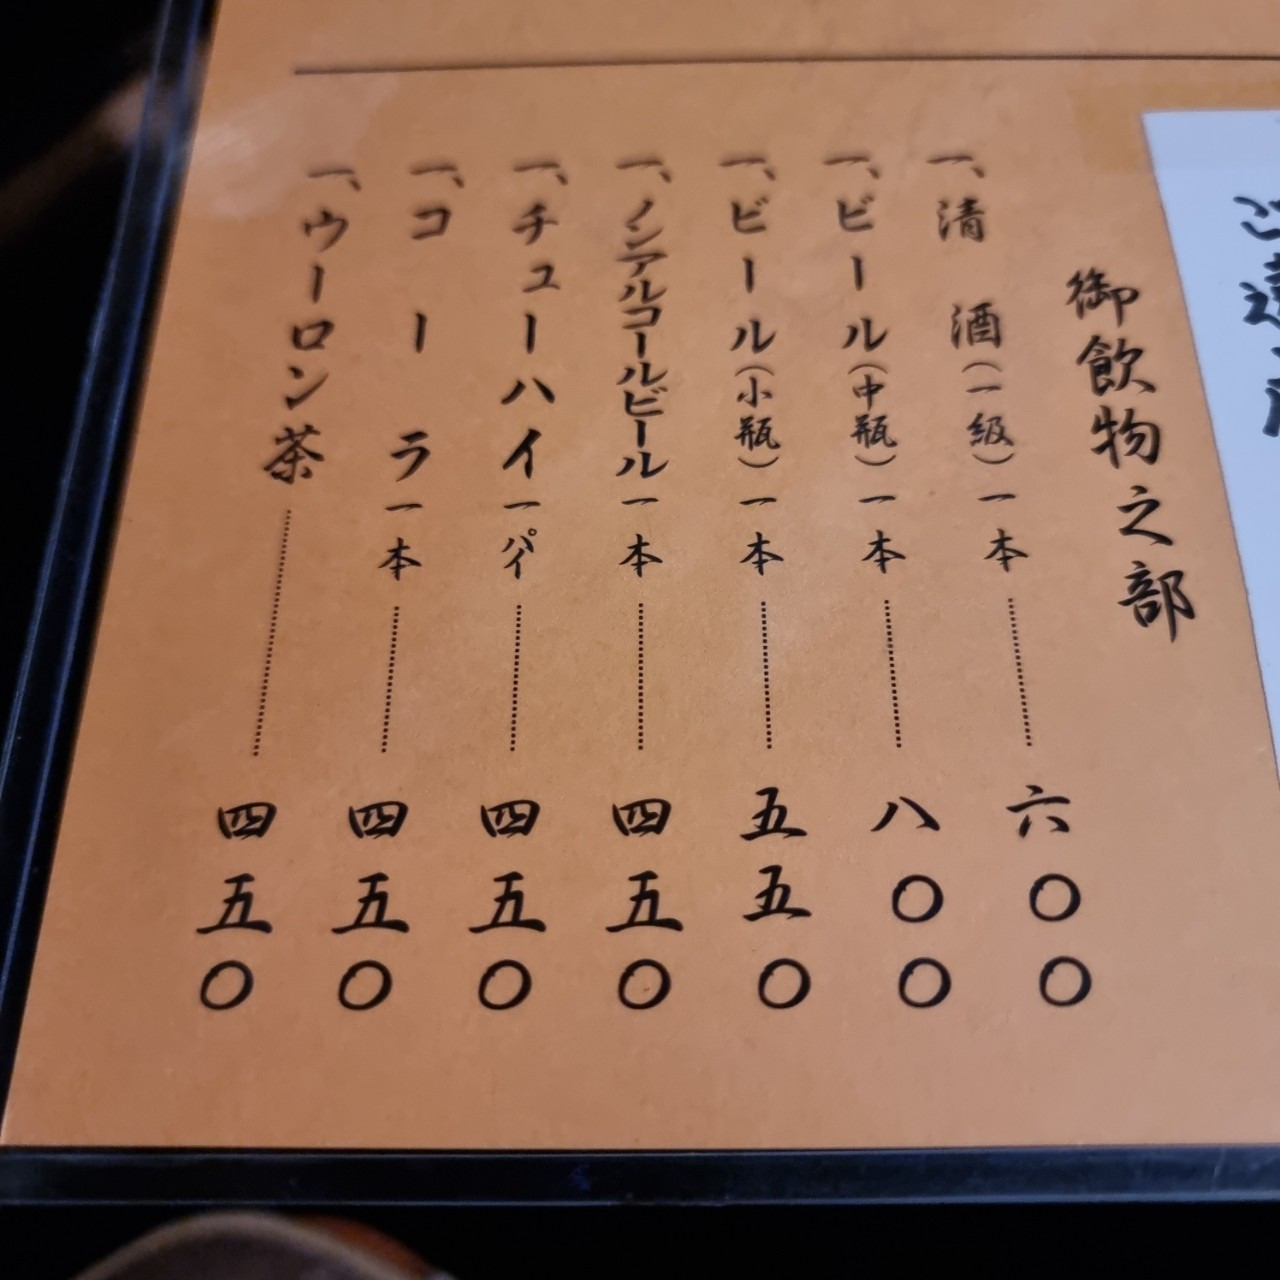 御飲物之部
一、清酒(一級)一本 六〇〇
一、ビール(中瓶)一本 八〇〇
一、ビール(小瓶)一本 五五〇
一、ノンアルコールビール一本 四五〇
一、チューハイ一パイ 四五〇
一、コーラ一本 四五〇
一、ウーロン茶 四五〇